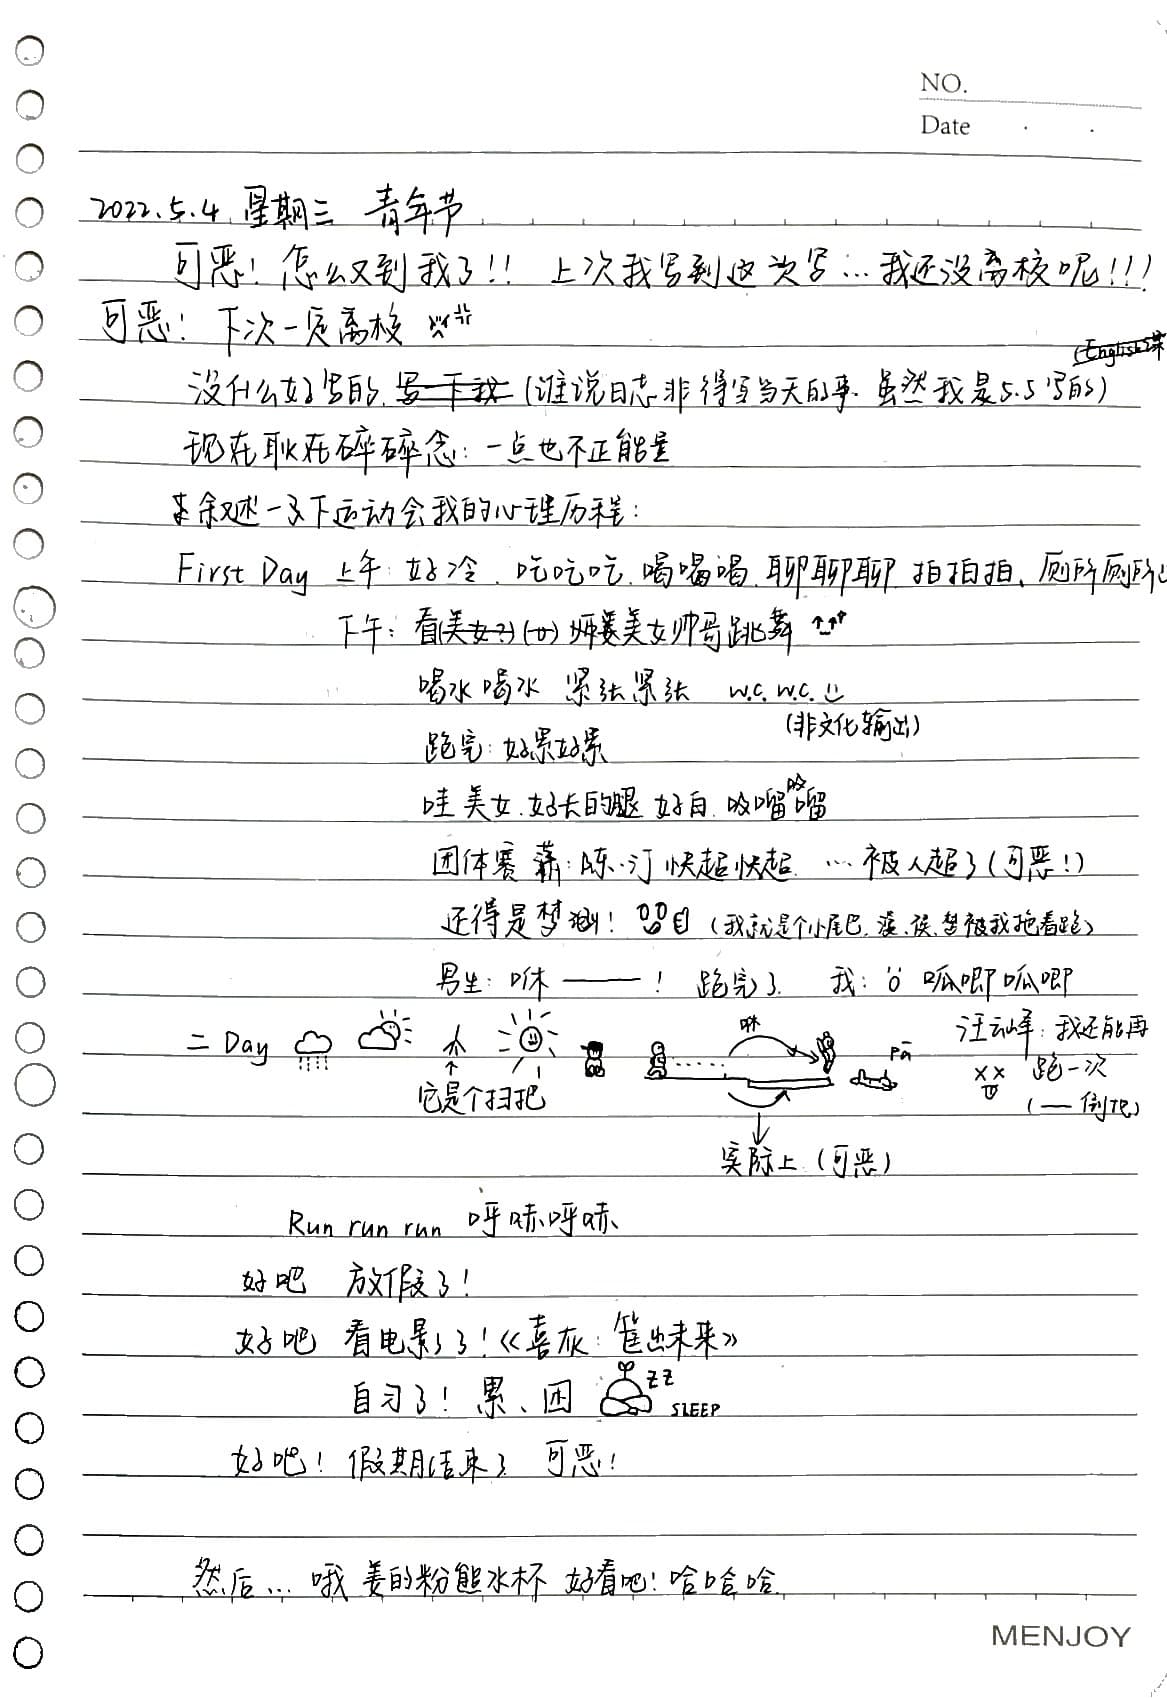 NO.
Date
2022.5.4 星期三 青年节
可恶！怎么又到我了!! 上次我写到这次写…我还没离校呢!!!
可恶！下次一定离校
(English课
没什么好写的. 写一下我 (谁说日志非得写当天的事. 虽然我是5.5写的)
现在耿在碎碎念: 一点也不正能量
来叙述一下运动会我的心理历程:
First Day 上午: 好冷. 吃吃吃. 喝喝喝. 聊聊聊. 拍拍拍、厕所厕所
下午: 看(美女?) 美女帅哥跳舞
喝水喝水 紧张紧张 W.C. W.C.
(非文化输出)
跑完: 好累好累
哇 美女. 好长的腿 好白. 吸溜吸溜
团体赛 陈、汀 快起快起. …被人超了(可恶!)
还得是梦 ! (我就是个小尾巴, 被我拖着跑)
男生: 咻——! 跑完了 我: 呱唧呱唧
二 Day
咻
pā
汪云峰: 我还能再
跑一次
它是个扫把
(一倒地)
实际上 (可恶)
Run run run 呼哧呼哧
好吧 放假了!
好吧 看电影了!《喜灰: 筐出未来》
自习了! 累、困
ZZ
SLEEP
好吧! 假期结束了 可恶!
然后… 哦 姜的粉熊水杯 好看吧! 哈哈哈
MENJOY